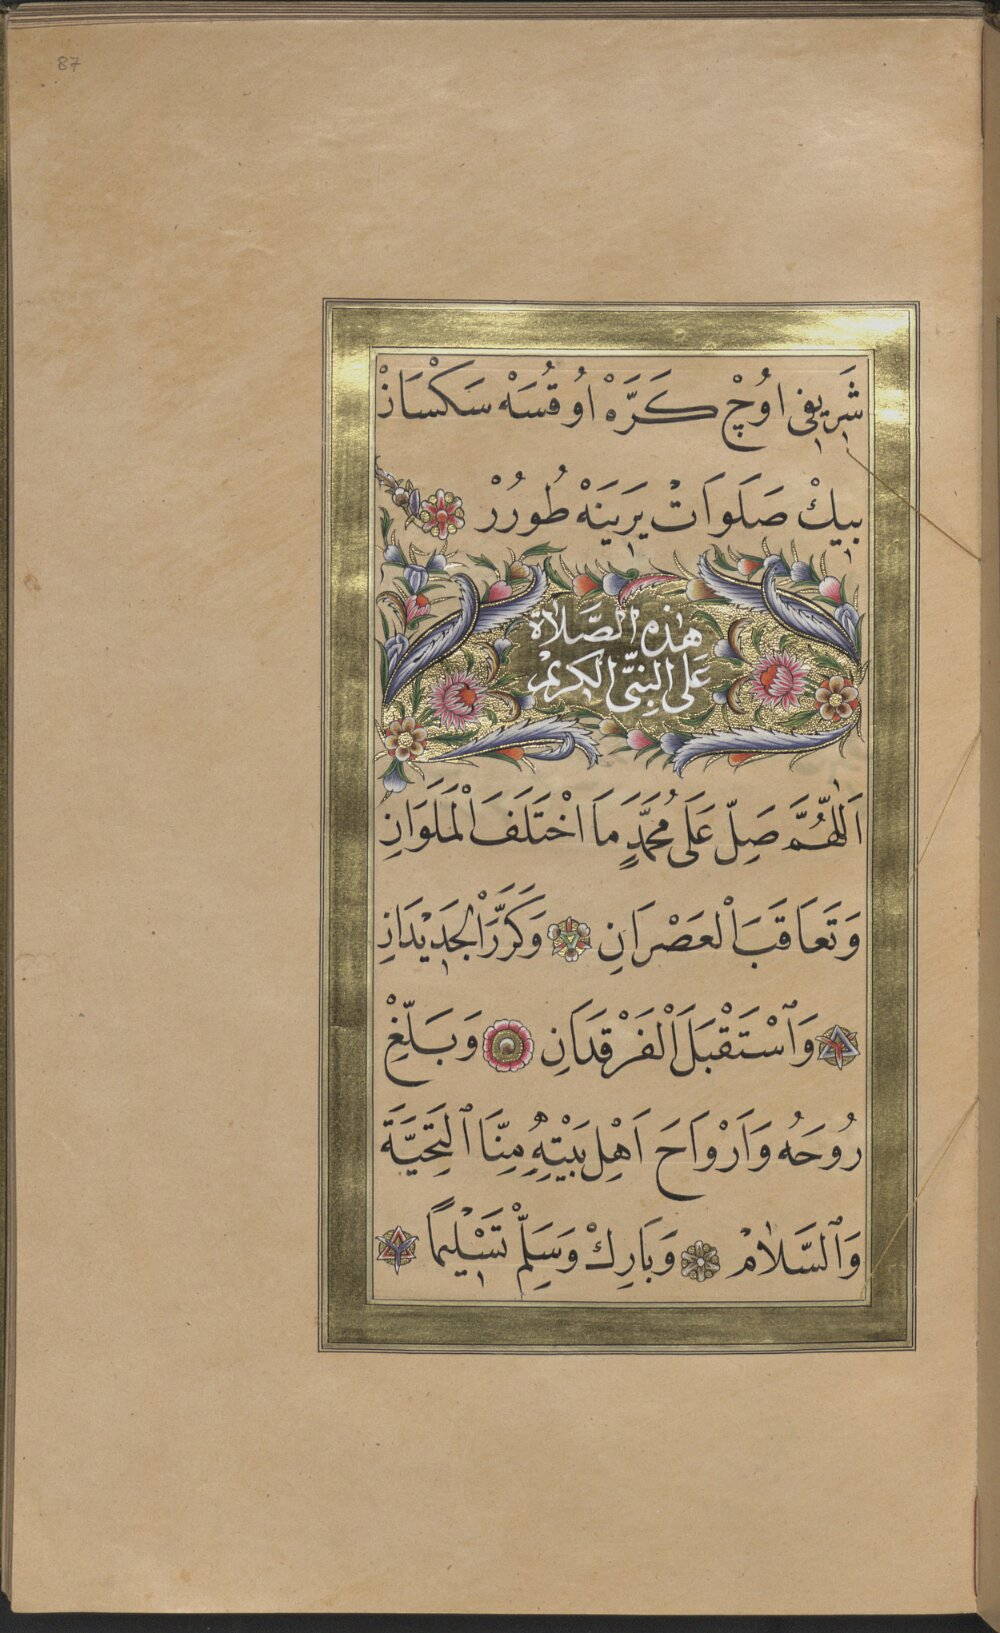 87
شَرِيفِى اوُچْ كَرَّهْ اوُقُسَهْ سَكْسَانْ
بِيكْ صَلَوَاتْ يَرِينَهْ طُورُرْ
هٰذِهِ الصَّلَاةُ
عَلَى النَّبِىِّ الْكَرِيمْ
اَللّٰهُمَّ صَلِّ عَلَى مُحَمَّدٍ مَا اخْتَلَفَ الْمَلَوَانِ
وَتَعَاقَبَ الْعَصْرَانِ وَكَرَّرَ الْجَدِيدَانِ
وَاسْتَقْبَلَ الْفَرْقَدَانِ وَبَلِّغْ
رُوحَهُ وَاَرْوَاحَ اَهْلِ بَيْتِهِ مِنَّا التَّحِيَّةَ
وَالسَّلَامْ وَبَارِكْ وَسَلِّمْ تَسْلِيمًا